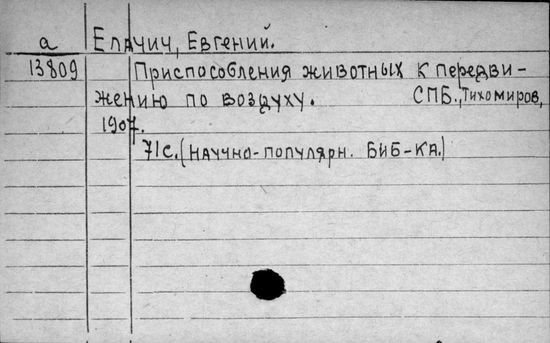 а Елачич, Евгений.
13809 Приспособления животных к передви-
жению по воздуху. СПБ., Тихомиров,
1907.
71с. (научно-популярн. биб-ка.)